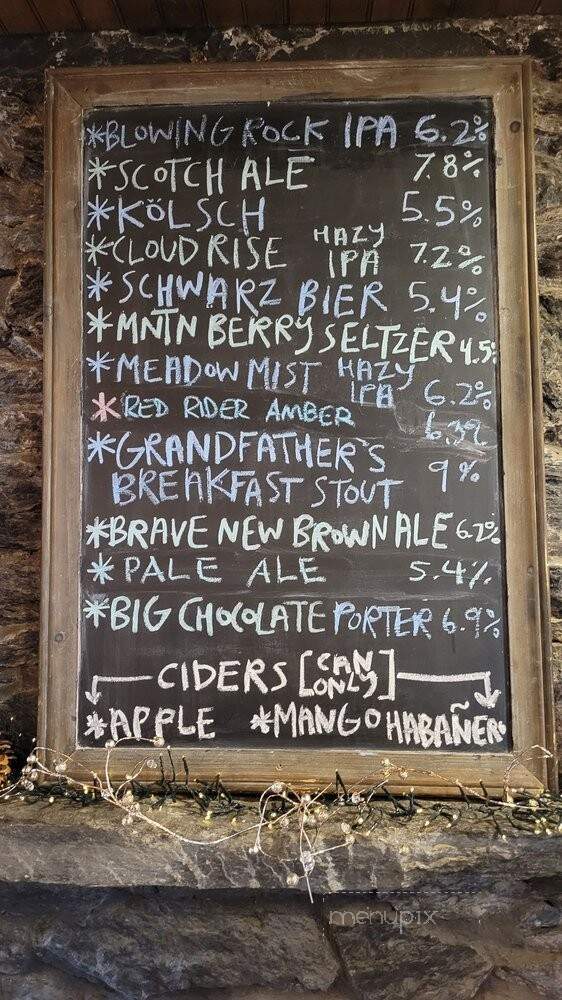 *BLOWING ROCK IPA 6.2%
*SCOTCH ALE 7.8%
*KÖLSCH 5.5%
*CLOUD RISE HAZY IPA 7.2%
*SCHWARZ BIER 5.4%
*MNTN BERRY SELTZER 4.5%
*MEADOW MIST HAZY IPA 6.2%
*RED RIDER AMBER
*GRANDFATHER'S
BREAKFAST STOUT 9%
*BRAVE NEW BROWN ALE
*PALE ALE 5.4%
*BIG CHOCOLATE PORTER 6.9%
CIDERS [CAN ONLY]
*APPLE *MANGO HABAÑERO
menupix